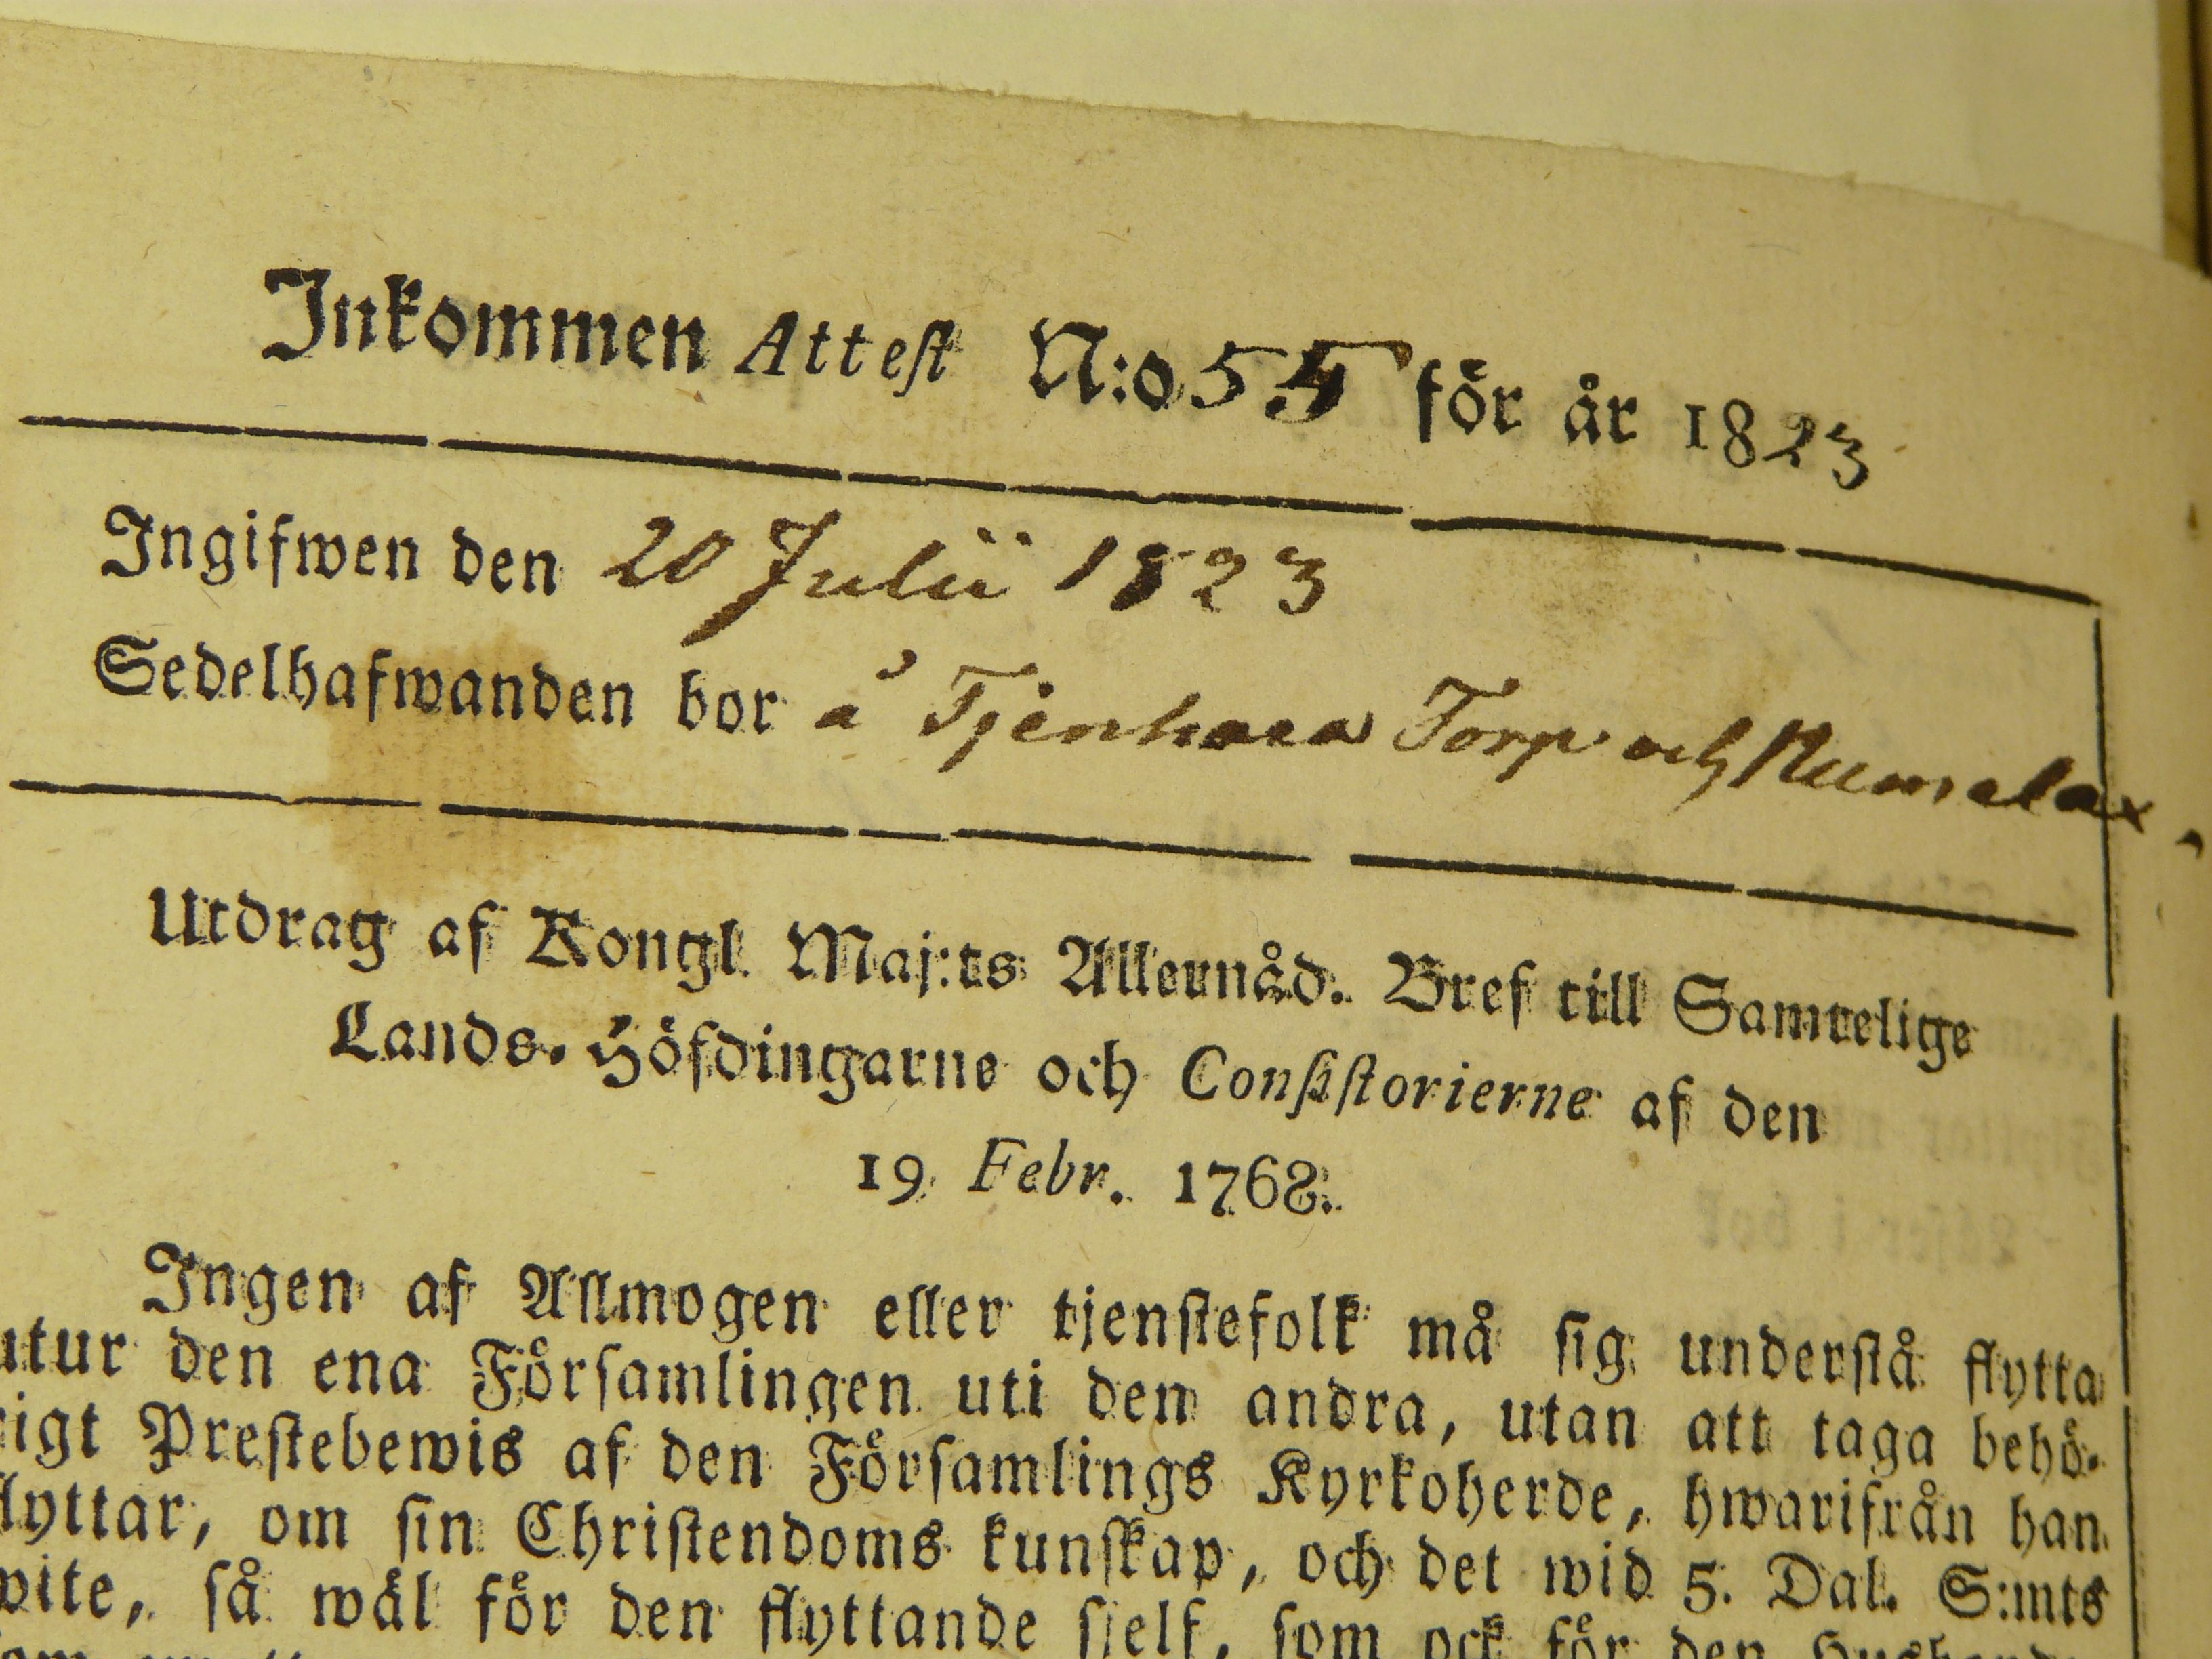 Inkommen Attest N:o 55 för år 1823
Ingifwen den 20 Julii 1823
Sedelhafwanden bor å Tjenhara Torp och Numelax
Utdrag af Kongl. Maj:ts Allernåd. Bref till Samtelige
Lands-Höfdingarne och Consistorierne af den
19 Febr. 1768.
Ingen af Allmogen eller tjenstefolk må sig understå flytta
utur den ena Församlingen uti den andra, utan att taga behö-
igt Prestebewis af den Församlings Kyrkoherde, hwarifrån han
lyttar, om sin Christendoms kunskap, och det wid 5. Dal. S:mts
wite, så wäl för den flyttande sjelf, som ock för den